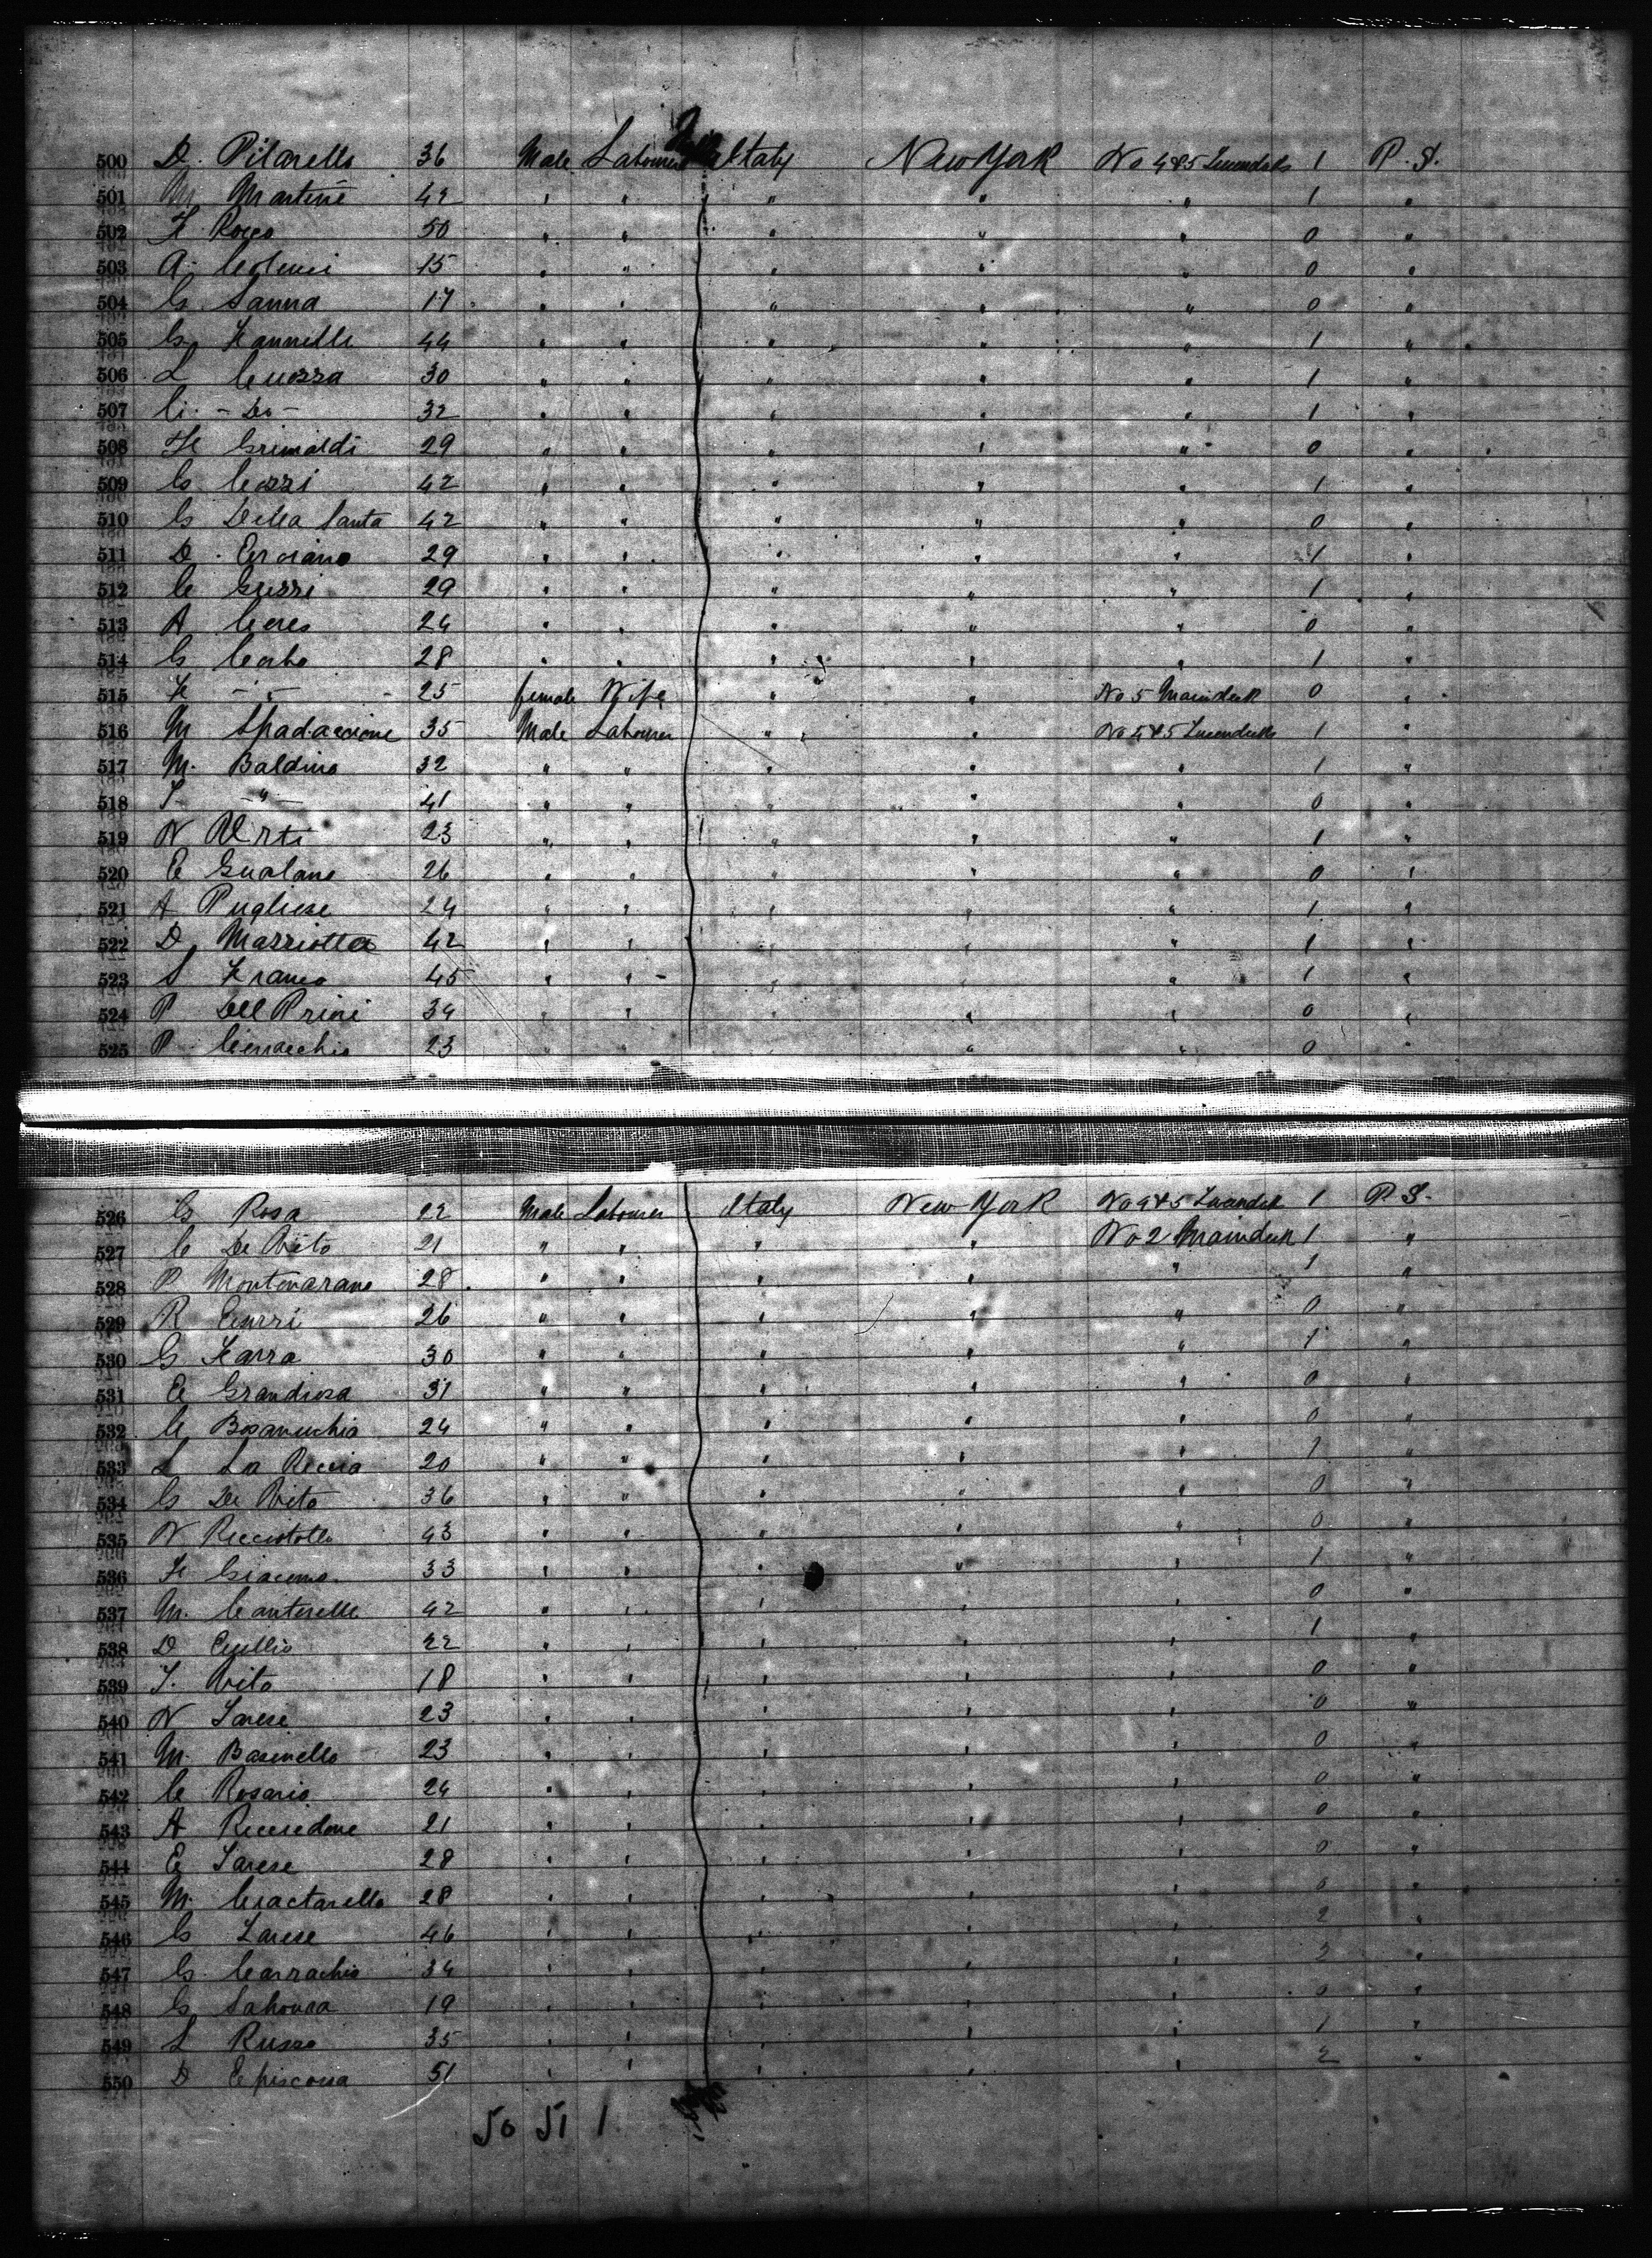 500 D. Pilarella 36 Male Labourer Italy New York No 4 & 5 1 P. S.
501 M Martini 42 " " " " " 1 "
502 F Rocco 50 " " " " " 0 "
503 A. 15 " " " " " 0 "
504 G. Sanna 17 " " " " " 0 "
505 G. Fannelli 44 " " " " " 1 "
506 L Cuozza 30 " " " " " 1 "
507 Ci. - Do - 32 " " " " " 1 "
508 F Grimaldi 29 " " " " " 0 "
509 G Cozzi 42 " " " " " 1 "
510 G Della Santa 42 " " " " " 0 "
511 D. 29 " " " " " 1 "
512 C 29 " " " " " 1 "
513 A Ceres 24 " " " " " 0 "
514 G 28 " " " " " 1 "
515 F - " - 25 female Wife " " No 5 Maindeck 0 "
516 M Spadaccione 35 Male Labourer " " No 4 & 5 1 "
517 M. Baldino 32 " " " " " 1 "
518 - " - 41 " " " " " 0 "
519 N 23 " " " " " 1 "
520 E Gualano 26 " " " " " 0 "
521 A Pugliese 24 " " " " " 1 "
522 D Mazziotta 42 " " " " " 1 "
523 S Franco 45 " " " " " 1 "
524 P Dell Prini 34 " " " " " 0 "
525 P 23 " " " " " 0 "
526 G Rosa 22 Male Labourer Italy New York No 4 & 5 1 P. S.
527 C De Vito 21 " " " " No 2 Maindeck 1 "
528 P Montemarano 28 " " " " " 1 "
529 R 26 " " " " " 0 "
530 G Farra 30 " " " " " 1 "
531 E Grandiosa 31 " " " " " 0 "
532 C 24 " " " " " 0 "
533 L La Riccia 20 " " " " " 1 "
534 G De Vito 36 " " " " " 0 "
535 N 43 " " " " " 0 "
536 F Giacomo 33 " " " " " 1 "
537 M. Canterelli 42 " " " " " 0 "
538 D 22 " " " " " 1 "
539 Vito 18 " " " " " 0 "
540 N Sarese 23 " " " " " 0 "
541 M. 23 " " " " " 0 "
542 C Rosario 24 " " " " " 0 "
543 A 21 " " " " " 0 "
544 E Sarese 28 " " " " " 0 "
545 M. 28 " " " " " 0 "
546 G Sarese 46 " " " " " 2 "
547 G. Carrachio 34 " " " " " 2 "
548 G 19 " " " " " 0 "
549 L Russo 35 " " " " " 1 "
550 D Episcosa 51 " " " " " 2 "
50 51 1